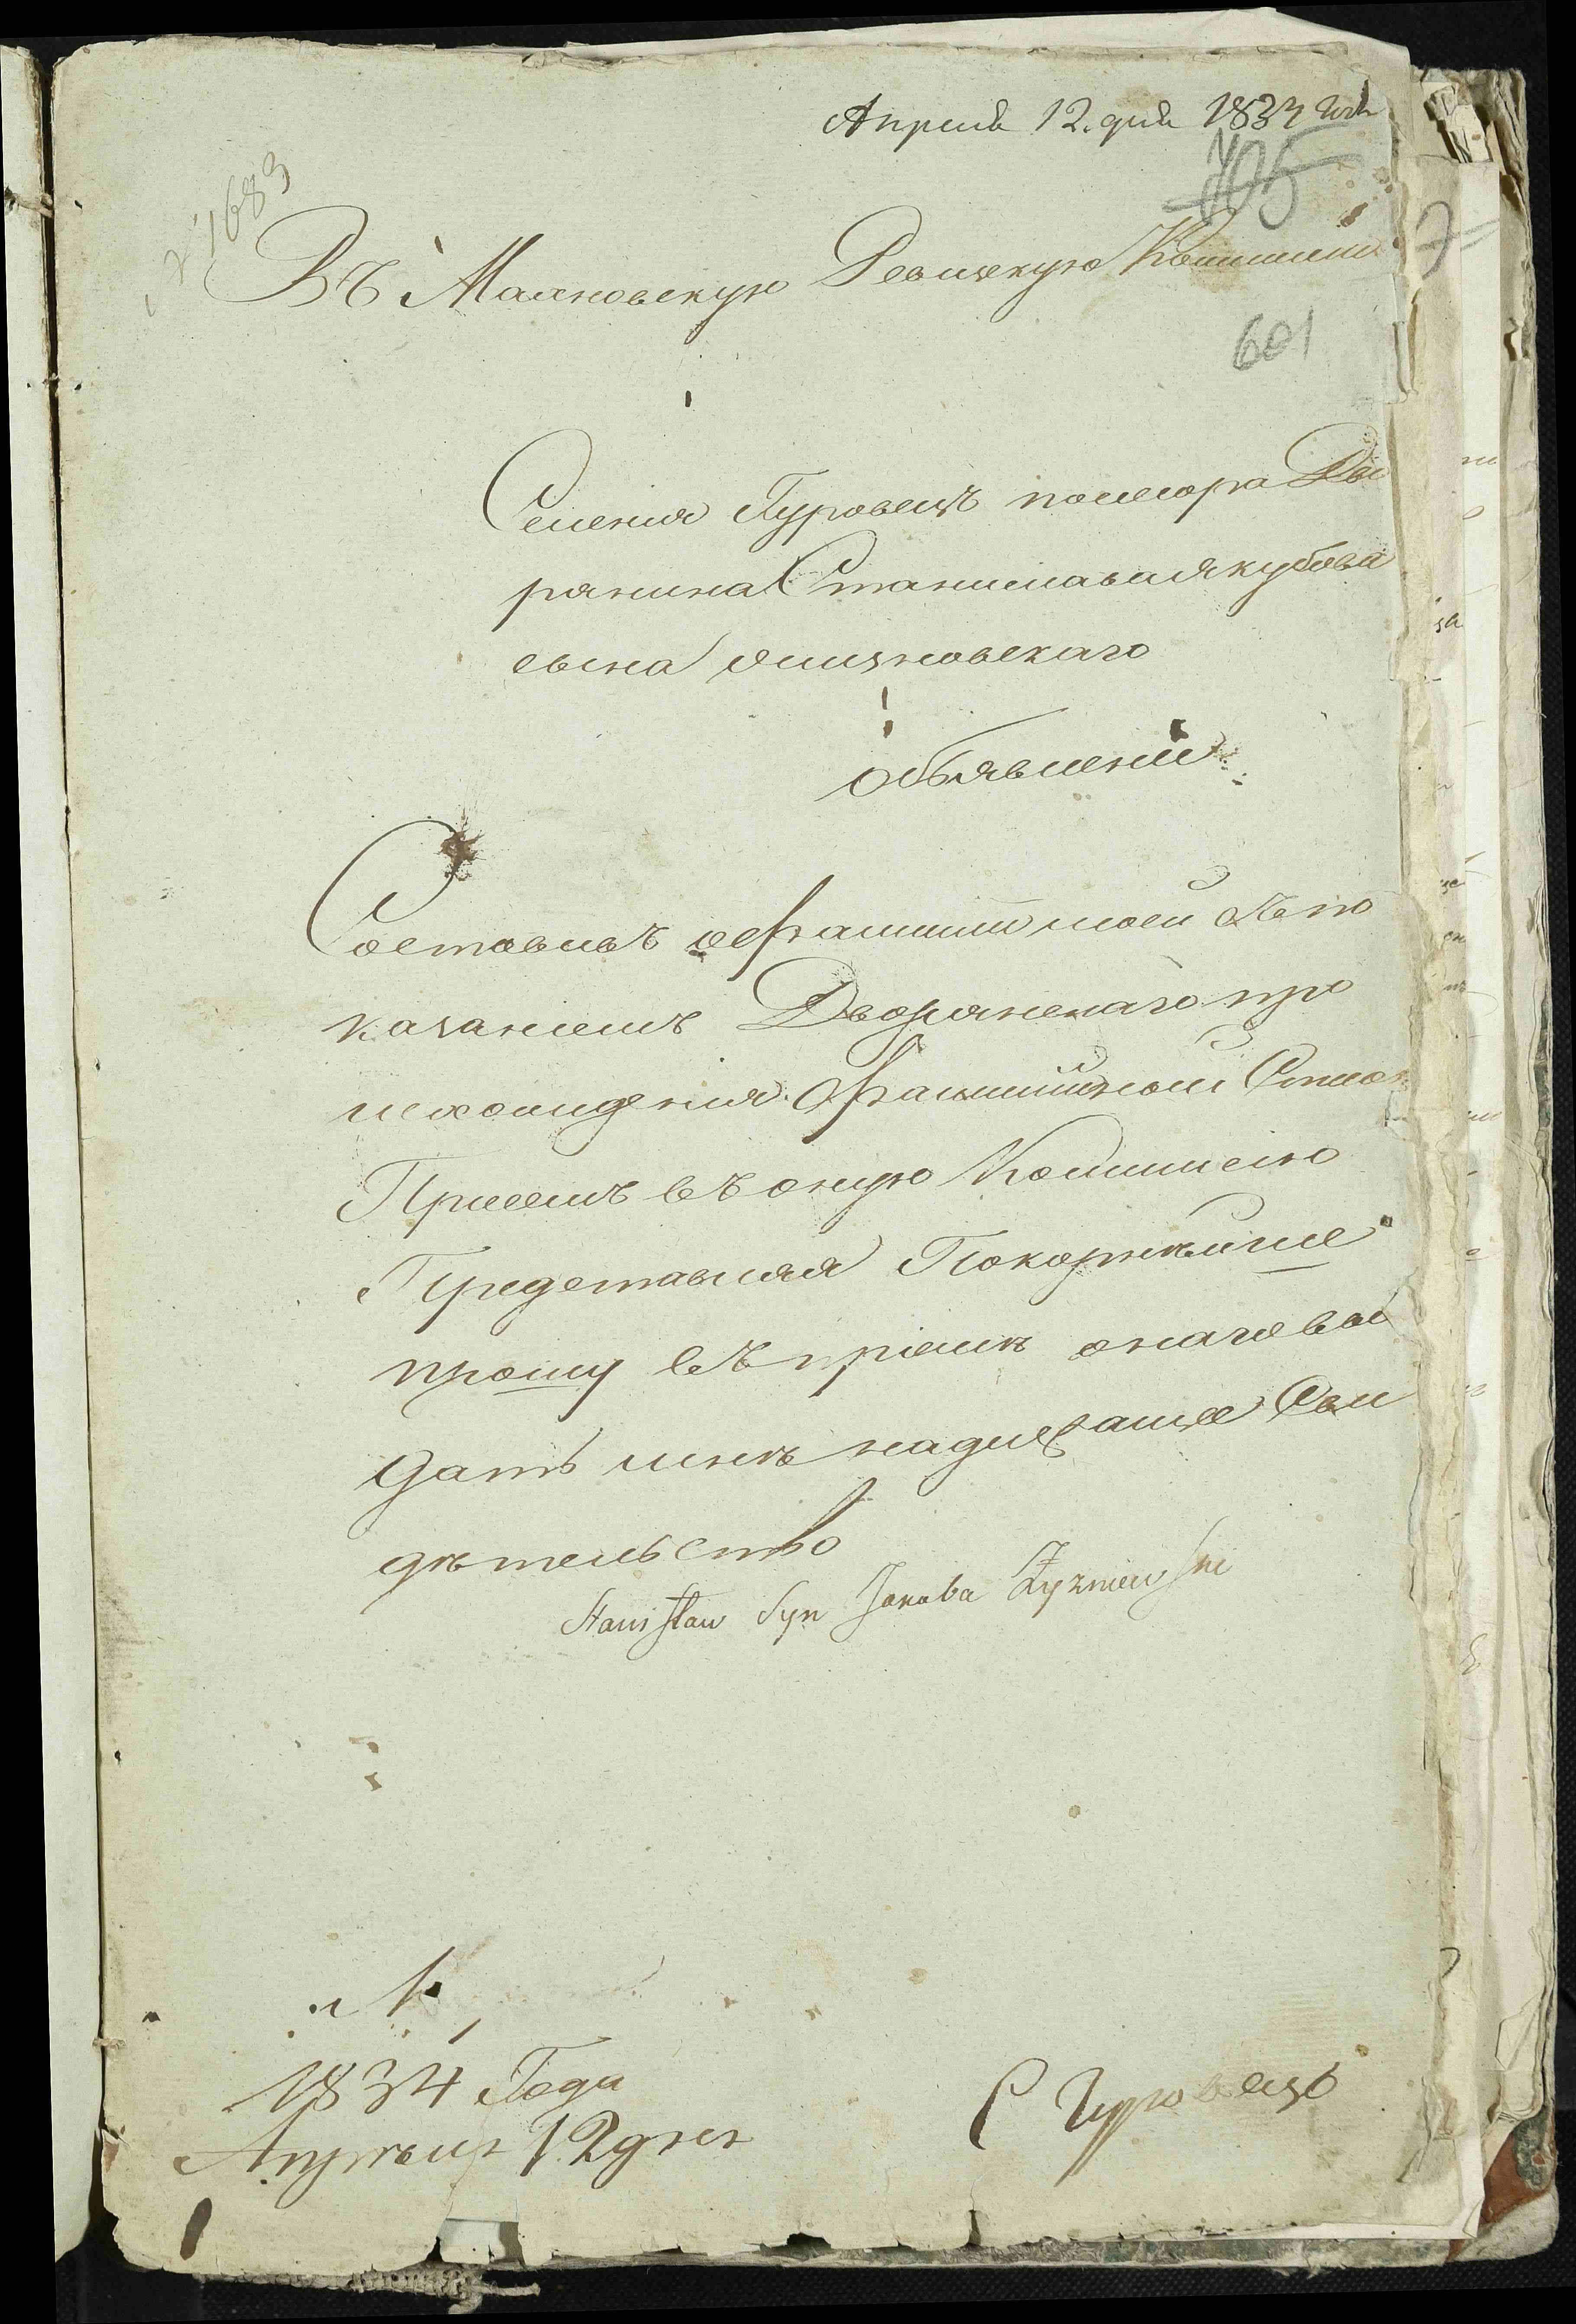 Апреля 12. дня 1834 года
705
1683
Въ Махновскую Ревизскую Коммисию
601
Селения Туровецъ посесора Дво
рянина Станислава Якубова
сына Жизновскаго
объявление
Составивъ о фамилии моей съ по
казаниемъ Дворянскаго про
исхождения Фамилийной Списокъ
Присемъ въ оную Коммисию
Представляя Покорнейше
прошу въ приемѣ онаго вы
дать мнѣ надлежащее Сви
дѣтельство
Stanisław Syn Jakuba Żyzniewski
№
1834 Года
Апрѣля 12 дня
С Туровецъ